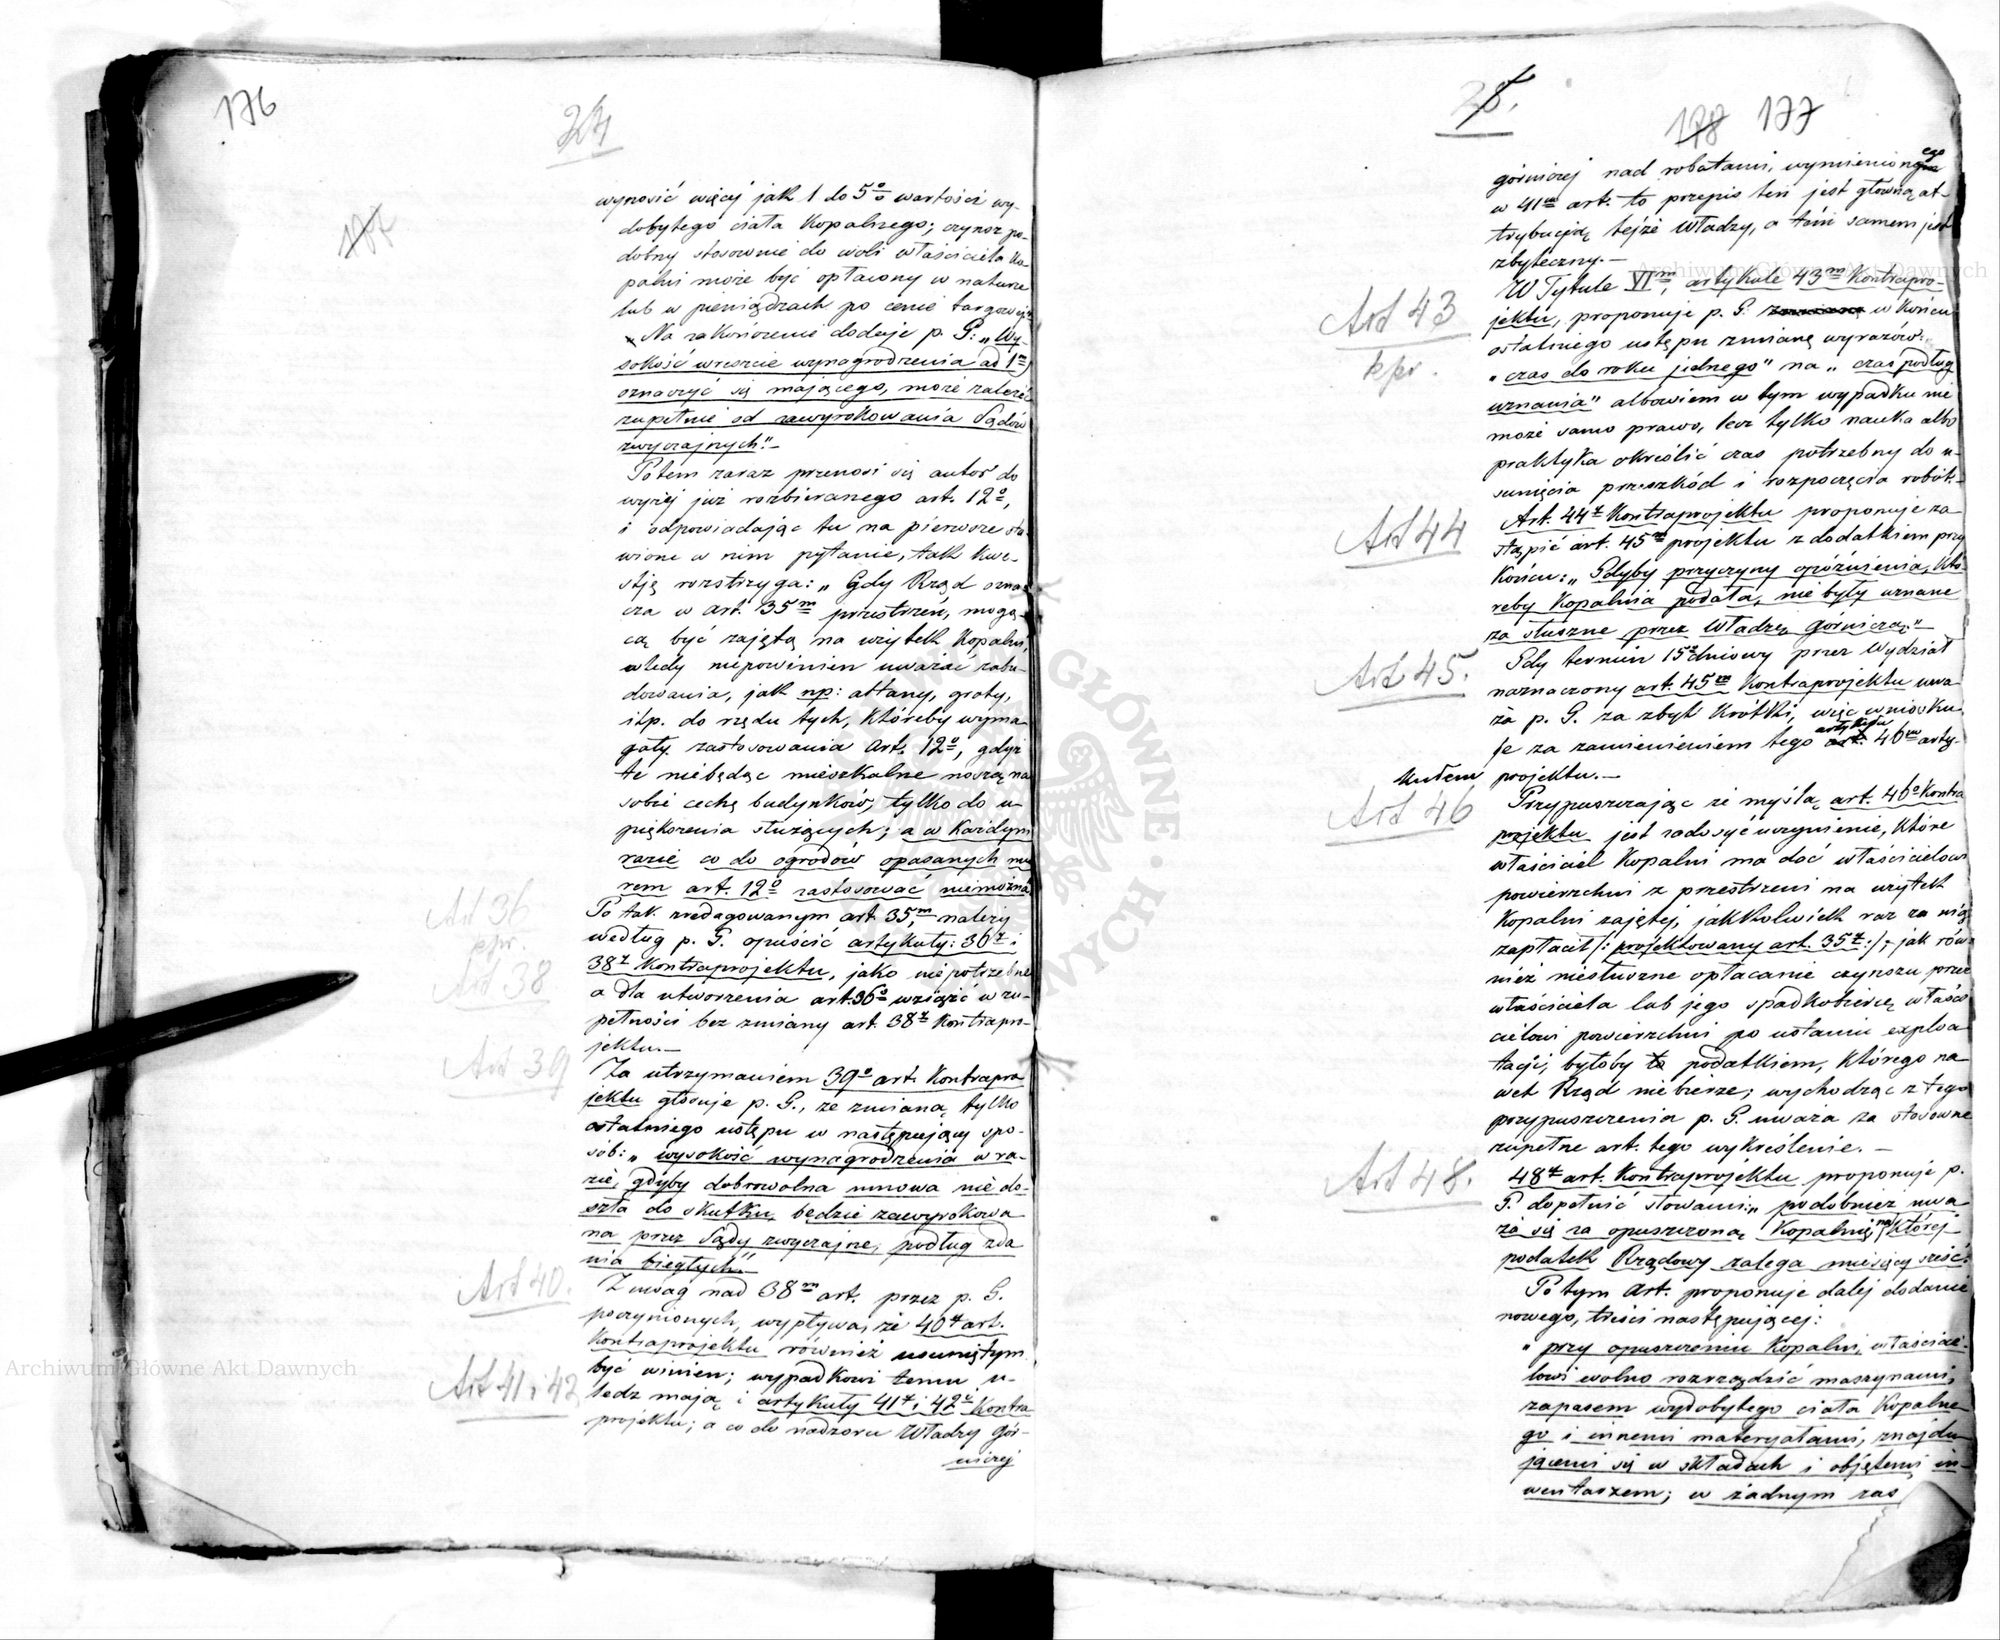 176
24
177
wynosić więcej jak 1 do 5% wartości wy-
dobytego ciała kopalnego; czynsz po-
dobny stosownie do woli właściciela ko-
palni może być opłacony w naturze
lub w pieniądzach po cenie targowej."
Na zakończenie dodaje p. G: „Wy-
sokość wreszcie wynagrodzenia ad 1m
oznaczyć się mającego, może zależeć
zupełnie od zawyrokowania Sądów
zwyczajnych."—
Potem zaraz przenosi się autor do
wyżej już rozbieranego art. 12o,
i odpowiadając tu na pierwsze sta-
wione w nim pytanie, tak kwe-
stję rozstrzyga: „Gdy Rząd ozna-
cza w art. 35m przestrzeń, mogą-
cą być zajętą na użytek kopalni,
wtedy niepowinien uważać zabu-
dowania, jak np: altany, groty,
itp. do rzędu tych, któreby wyma-
gały zastosowania art. 12o, gdyż
te niebędąc mieszkalne noszą na
sobie cechę budynków, tylko do u-
piększenia służących; a w każdym
razie co do ogrodów opasanych mu
rem art. 12o zastosować niemożna
Art 36
kpr.
Po tak zredagowanym art. 35m, należy
według p. G. opuścić artykuły: 36t i
Art 38
38t Kontraprojektu, jako niepotrzebne
a dla utworzenia art. 36o wziąść w zu-
pełności bez zmiany art. 38t Kontrapro-
jektu.—
Art 39
Za utrzymaniem 39o art. Kontrapro
jektu głosuje p. G., ze zmianą tylko
ostatniego ustępu w następujący spo-
sób: „wysokość wynagrodzenia w ra-
zie, gdyby dobrowolna umowa nie do-
szła do skutku, będzie zawyrokowa
na przez Sądy zwyczajne, podług zda
nia biegłych."—
Art 40.
Z uwag nad 38m art. przez p. G.
poczynionych, wypływa, że 40t art.
Kontraprojektu również usuniętym
być winien; wypadkowi temu u-
Art 41 i 42
ledz mają i artykuły 41t i 42t Kontra
projektu; a co do nadzoru Władzy Gór-
niczej
25.
178 177
górniczej nad robotami, wymienionego
w 41m art. to przepis ten jest główną at-
trybucją tejże Władzy, a tém samem jest
zbyteczny.—
Art 43
kpr.
W Tytule VIm, artykule 43m Kontrapro-
jektu, proponuje p. G. w końcu
ostatniego ustępu zmianę wyrazów:
„czas do roku jednego" na „czas podług
uznania" albowiem w tym wypadku nie
może samo prawo, lecz tylko nauka albo
praktyka określić czas potrzebny do u-
sunięcia przeszkód i rozpoczęcia robót.—
Art 44
Art. 44t Kontraprojektu proponuje za
stąpić art. 45m projektu z dodatkiem przy
końcu: „Gdyby przyczyny opóźnienia, któ-
reby kopalnia podała, nie były uznane
za słuszne przez Władzę górniczą."—
Art 45.
Gdy termin 15o dniowy przez Wydział
naznaczony art. 45m Kontraprojektu uwa
ża p. G. za zbyt krótki, więc wniosku
je za zamienieniem tego artykułu 46m arty-
kułem projektu.—
Art 46
Przypuszczając że myślą art. 46o Kontra
projektu jest zadosyć uczynienie, które
właściciel kopalni ma dać właścicielowi
powierzchni z przestrzeni na użytek
kopalni zajętej, jakkolwiek raz za nią
zapłacił /: projektowany art. 35t :/, jak rów
nież niesłuszne opłacanie czynszu przez
właściciela lub jego spadkobiercę właści
cielowi powierzchni po ustaniu exploa
tacji, byłoby to podatkiem, którego na
wet Rząd nie bierze; wychodząc z tego
przypuszczenia p. G. uważa za stosowne
zupełne art. tego wykreślenie.—
Art 48.
48t art. Kontraprojektu proponuje p.
G. dopełnić słowami: „podobnież uwa
ża się za opuszczoną kopalnię, na której
podatek Rządowy zalega miesięcy sześć."
Po tym art. proponuje dalej dodanie
nowego, treści następującej:
„przy opuszczeniu kopalni, właścicie-
lowi wolno rozrządzić maszynami,
zapasem wydobytego ciała kopalne-
go i innemi materyałami, znajdu
jącemi się w składach i objętemi in-
wentarzem; w żadnym zas
Archiwum Główne Akt Dawnych
Archiwum Główne Akt Dawnych